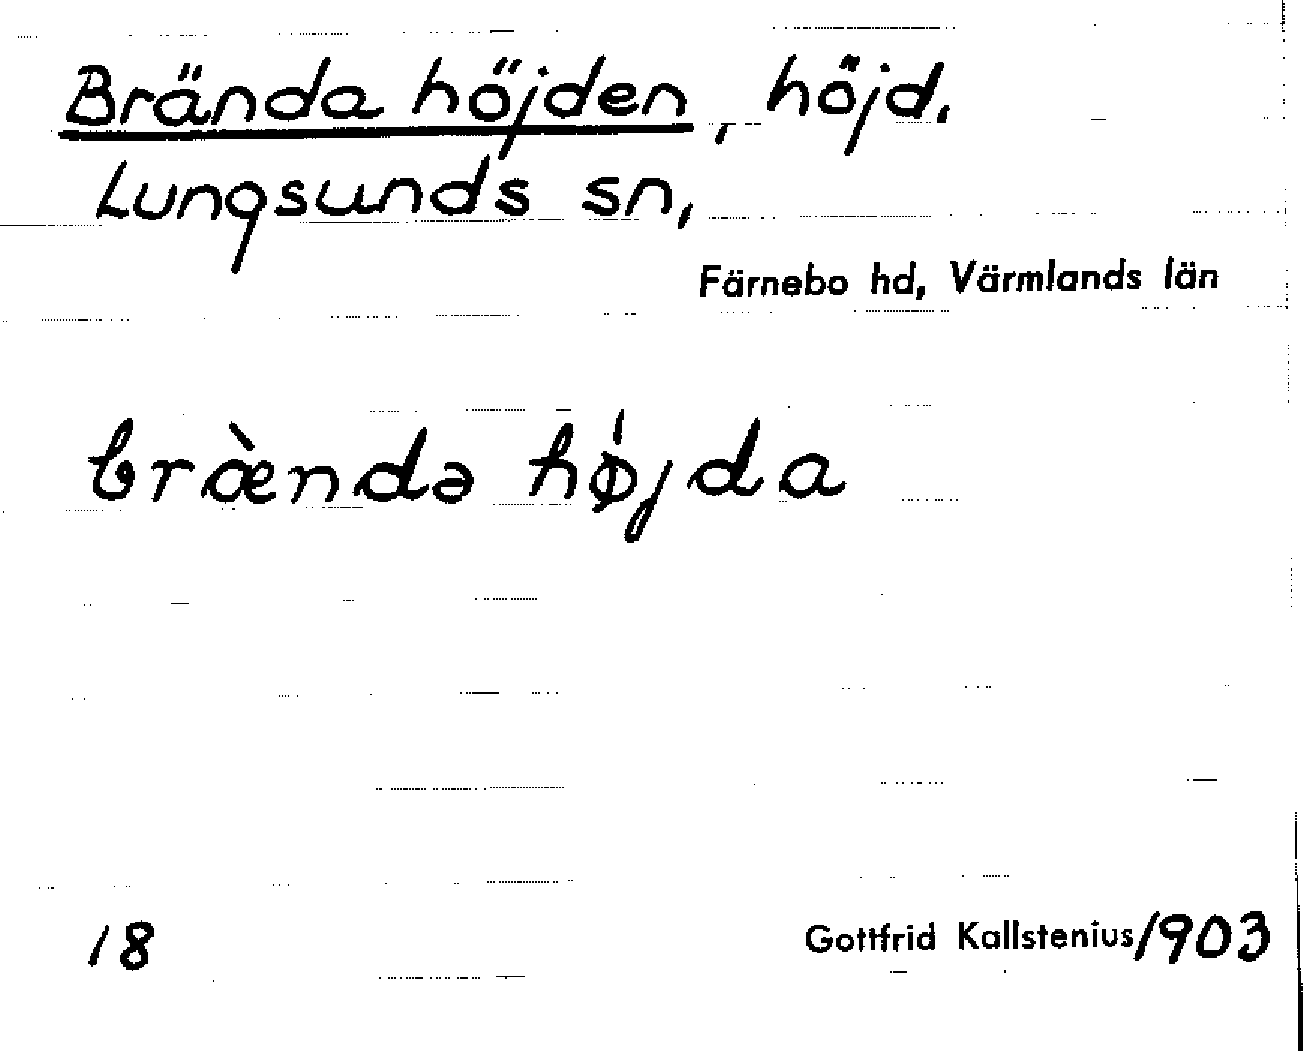 Brända höjden, höjd.
Lungsunds sn,
Färnebo hd, Värmlands län
bræ̀ndə hǿjda
18
Gottfrid Kallstenius/903